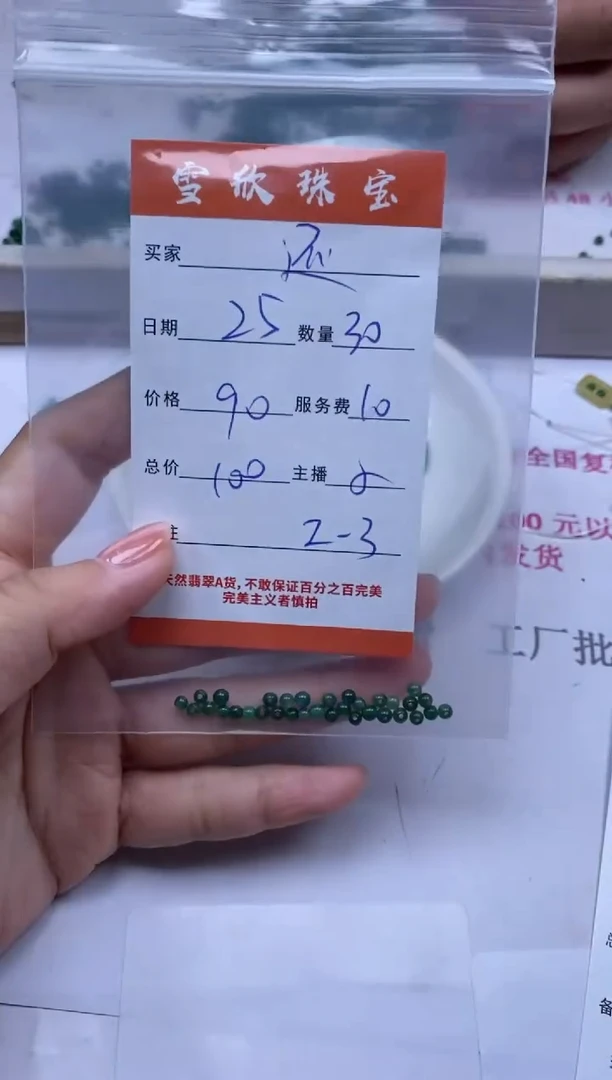 雪欣珠宝
买家
日期 25 数量 30
价格 90 服务费 10
总价 100 主播
注 2-3
天然翡翠A货，不敢保证百分之百完美
完美主义者慎拍
全国复
00元以
发货
工厂批